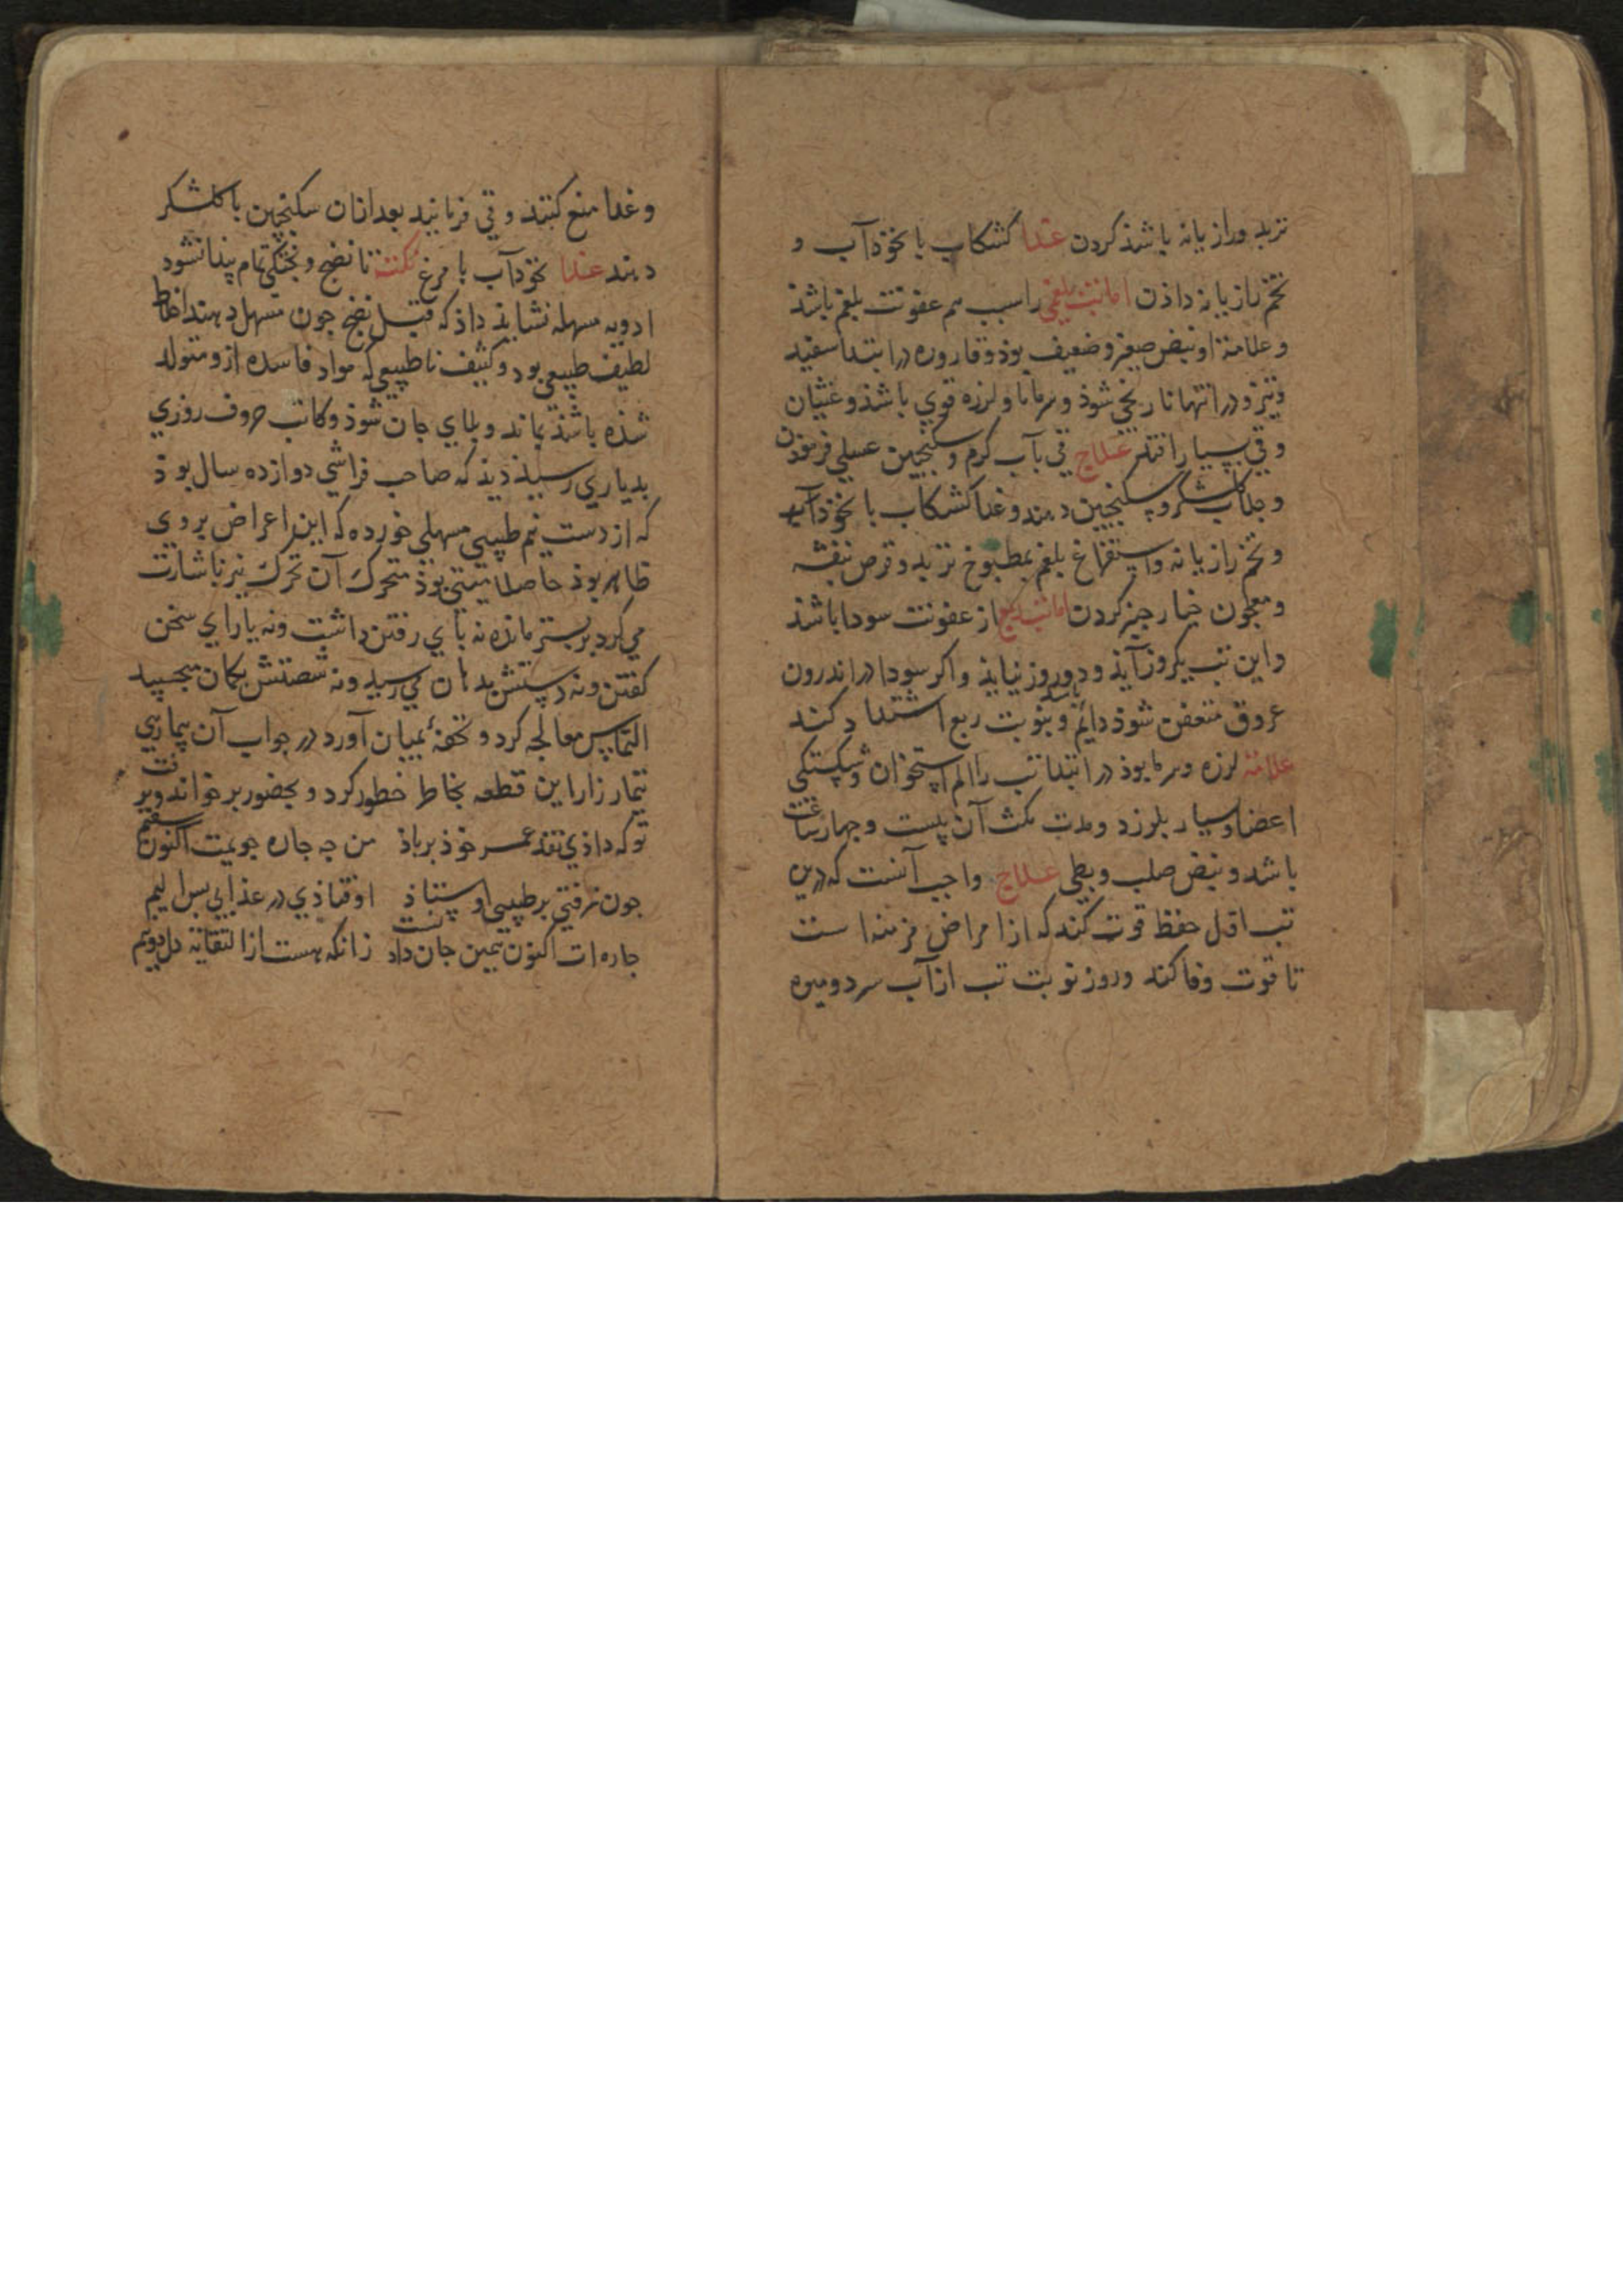 تربد ورازیانه باشذ کردن غذا کشکاب با نخوذآب و
تخم رازیانه داذن اما تب بلغمی را سبب هم عفونت بلغم باشذ
و علامة او نبض صغیر و ضعیف بوذ و قاروره در ابتدا سفید
و در انتها نارنجی شوذ و سرما و لرزه قوی باشذ و غثیان
و قی بسیار افتد علاج قی بآب کرم و سکنجبین عسلی فرموذن
و جلاب شکر و سکنجبین دهند و غذا کشکاب با نخوذآب
و تخم رازیانه و استفراغ بلغم بمطبوخ تربد و قرص بنفشه
و معجون خیارجنبر کردن اما تب ربع از عفونت سودا باشذ
و این تب یکروز آیذ و دو روز نیایذ و اکر سودا در اندرون
عروق متعفن شوذ دائم باشد و بنوبت ربع اشتداد کند
علامة لرزه و سرما بوذ در ابتدا تب را الم استخوان و شکستکی
اعضا و بسیار بلرزد و مدت مکث آن بیست و جهار ساعت
باشد و نبض صلب و بطی علاج واجب آنست که درین
تب اول حفظ قوت کند که از امراض مزمنه است
تا قوت وفا کند و روز نوبت تب از آب سرد و میوه
و غذا منع کنند و قی فرمایند بعد ازان سکنجبین با کلشکر
دهند غذا نخوذآب با مرغ نکتة تا نضج و پختکی تمام پیدا نشود
ادویه مسهله نشایذ داذ که قبل نضج جون مسهل دهند اخلاط
لطیف طبیعی بود و کثیف ناطبیعی که مواد فاسده ازو متولد
شذه باشذ بماند و بلای جان شوذ و کاتب حروف روزی
بدیاری رسیذ دیذ که صاحب فراشی دوازده سال بوذ
که از دست نیم طبیبی مسهلی خورده که این اعراض بروی
ظاهر بوذ حاصل میتی بوذ متحرک آن تحرک نیز باشارت
می کرد بر بستر مانده نه پای رفتن داشت و نه یارای سخن
کفتن و نه دستش بدهان می رسید و نه شصتش بکمان میجسپید
التماس معالجه کرد و تحفهٔ بمیان آورد در جواب آن بیماری
تیمار زار این قطعه بخاطر خطور کرد و بحضور برخواند و برفت
توکه داذی نقد عمر خوذ برباذ من جه جاره جویمت اکنون سقیم
جون نرفتی بر طبیبی اوستاذ اوفتاذی در عذابی بس الیم
جاره ات اکنون همین جان داد نست زانکه هست از التقاته دل دونیم